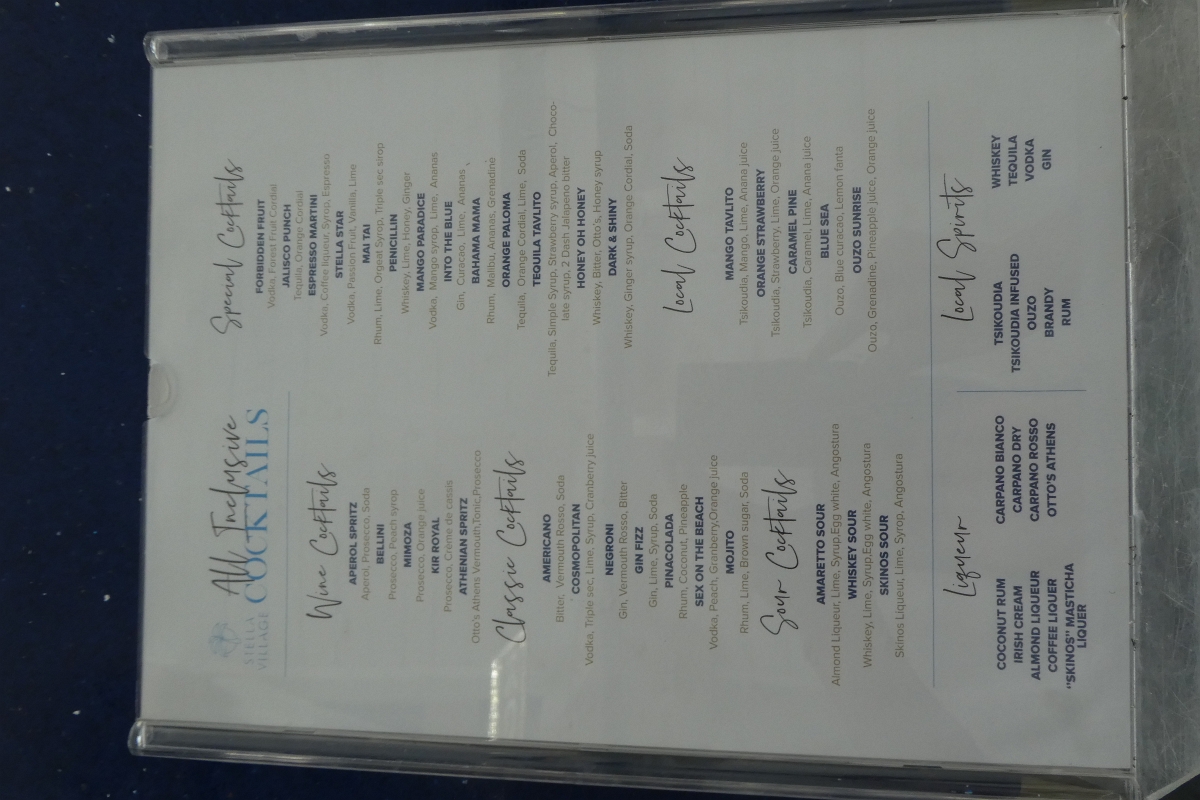 STELLA
VILLAGE
All Inclusive
COCKTAILS
Wine Cocktails
APEROL SPRITZ
Aperol, Prosecco, Soda
BELLINI
Prosecco, Peach syrop
MIMOZA
Prosecco, Orange juice
KIR ROYAL
Prosecco, Crème de cassis
ATHENIAN SPRITZ
Otto's Athens Vermouth,Tonic,Prosecco
Classic Cocktails
AMERICANO
Bitter, Vermouth Rosso, Soda
COSMOPOLITAN
Vodka, Triple sec, Lime, Syrup, Cranberry juice
NEGRONI
Gin, Vermouth Rosso, Bitter
GIN FIZZ
Gin, Lime, Syrup, Soda
PINACOLADA
Rhum, Coconut, Pineapple
SEX ON THE BEACH
Vodka, Peach, Granberry,Orange juice
MOJITO
Rhum, Lime, Brown sugar, Soda
Sour Cocktails
AMARETTO SOUR
Almond Liqueur, Lime, Syrup,Egg white, Angostura
WHISKEY SOUR
Whiskey, Lime, Syrup,Egg white, Angostura
SKINOS SOUR
Skinos Liqueur, Lime, Syrop, Angostura
Special Cocktails
FORBIDDEN FRUIT
Vodka, Forest Fruit Cordial
JALISCO PUNCH
Tequila, Orange Cordial
ESPRESSO MARTINI
Vodka, Coffee liqueur, Syrop, Espresso
STELLA STAR
Vodka, Passion Fruit, Vanilla, Lime
MAI TAI
Rhum, Lime, Orgeat Syrop, Triple sec sirop
PENICILLIN
Whiskey, Lime, Honey, Ginger
MANGO PARADICE
Vodka, Mango syrop, Lime, Ananas
INTO THE BLUE
Gin, Curacao, Lime, Ananas ,
BAHAMA MAMA
Rhum, Malibu, Ananas, Grenadine
ORANGE PALOMA
Tequila, Orange Cordial, Lime, Soda
TEQUILA TAVLITO
Tequila, Simple Syrup, Strawberry syrup, Aperol, Choco-
late syrup, 2 Dash Jalapeno bitter
HONEY OH HONEY
Whiskey, Bitter, Otto's, Honey syrup
DARK & SHINY
Whiskey, Ginger syrup, Orange Cordial, Soda
Local Cocktails
MANGO TAVLITO
Tsikoudia, Mango, Lime, Anana juice
ORANGE STRAWBERRY
Tsikoudia, Strawberry, Lime, Orange juice
CARAMEL PINE
Tsikoudia, Caramel, Lime, Anana juice
BLUE SEA
Ouzo, Blue curacao, Lemon fanta
OUZO SUNRISE
Ouzo, Grenadine, Pineapple juice, Orange juice
Liqueur
COCONUT RUM
IRISH CREAM
ALMOND LIQUEUR
COFFEE LIQUER
"SKINOS" MASTICHA
LIQUER
CARPANO BIANCO
CARPANO DRY
CARPANO ROSSO
OTTO'S ATHENS
Local Spirits
TSIKOUDIA
TSIKOUDIA INFUSED
OUZO
BRANDY
RUM
WHISKEY
TEQUILA
VODKA
GIN